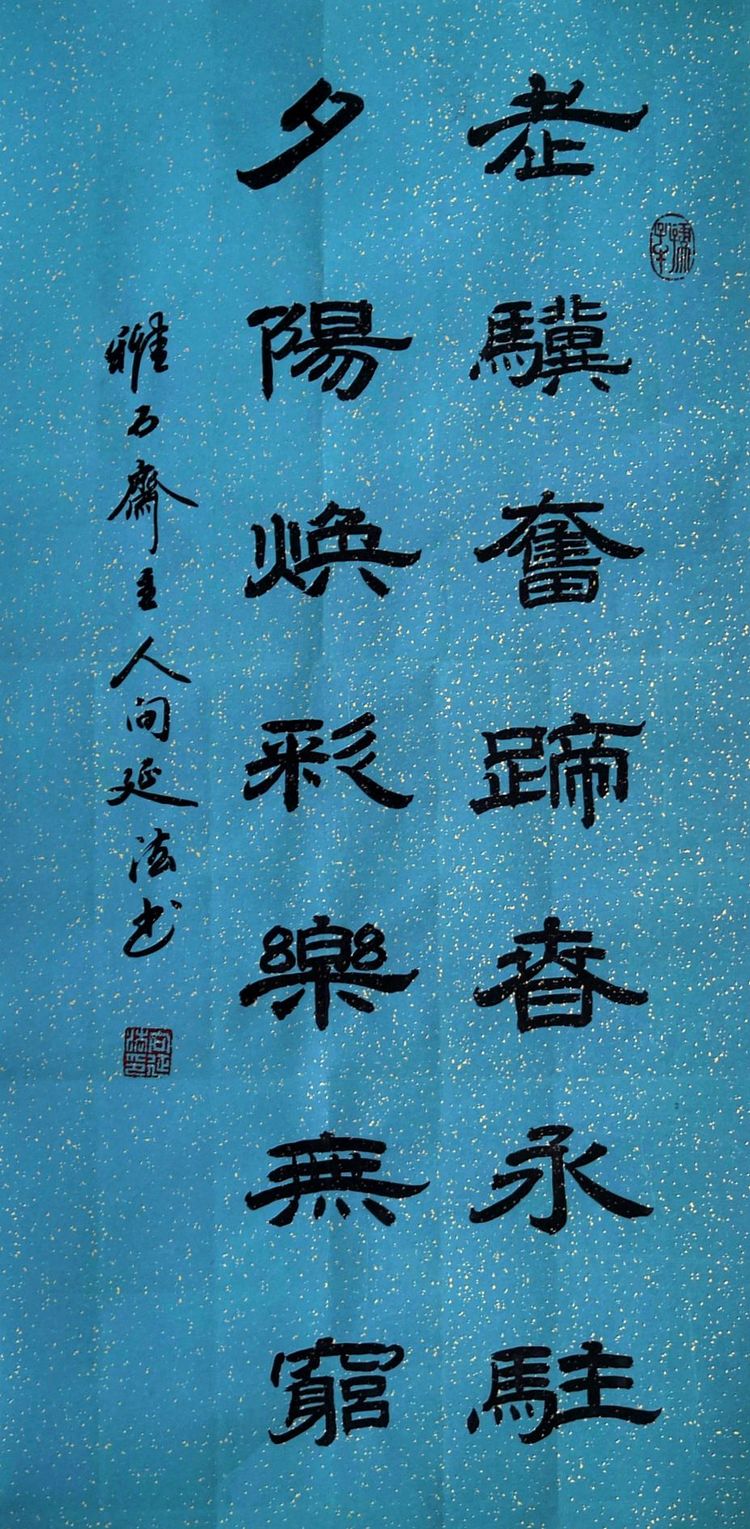 老驥奮蹄春永駐
夕陽煥彩樂無窮
雅石齋主人向延法书